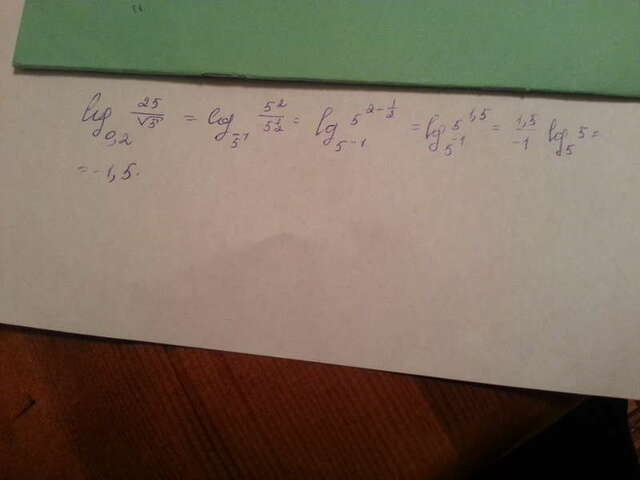 log_{0,2} \frac{25}{\sqrt{5}} = log_{5^{-1}} \frac{5^2}{5^{\frac{1}{2}}} = lg_{5^{-1}} 5^{2-\frac{1}{2}} = lg_{5^{-1}} 5^{1,5} = \frac{1,5}{-1} lg_5 5 =
= -1,5.